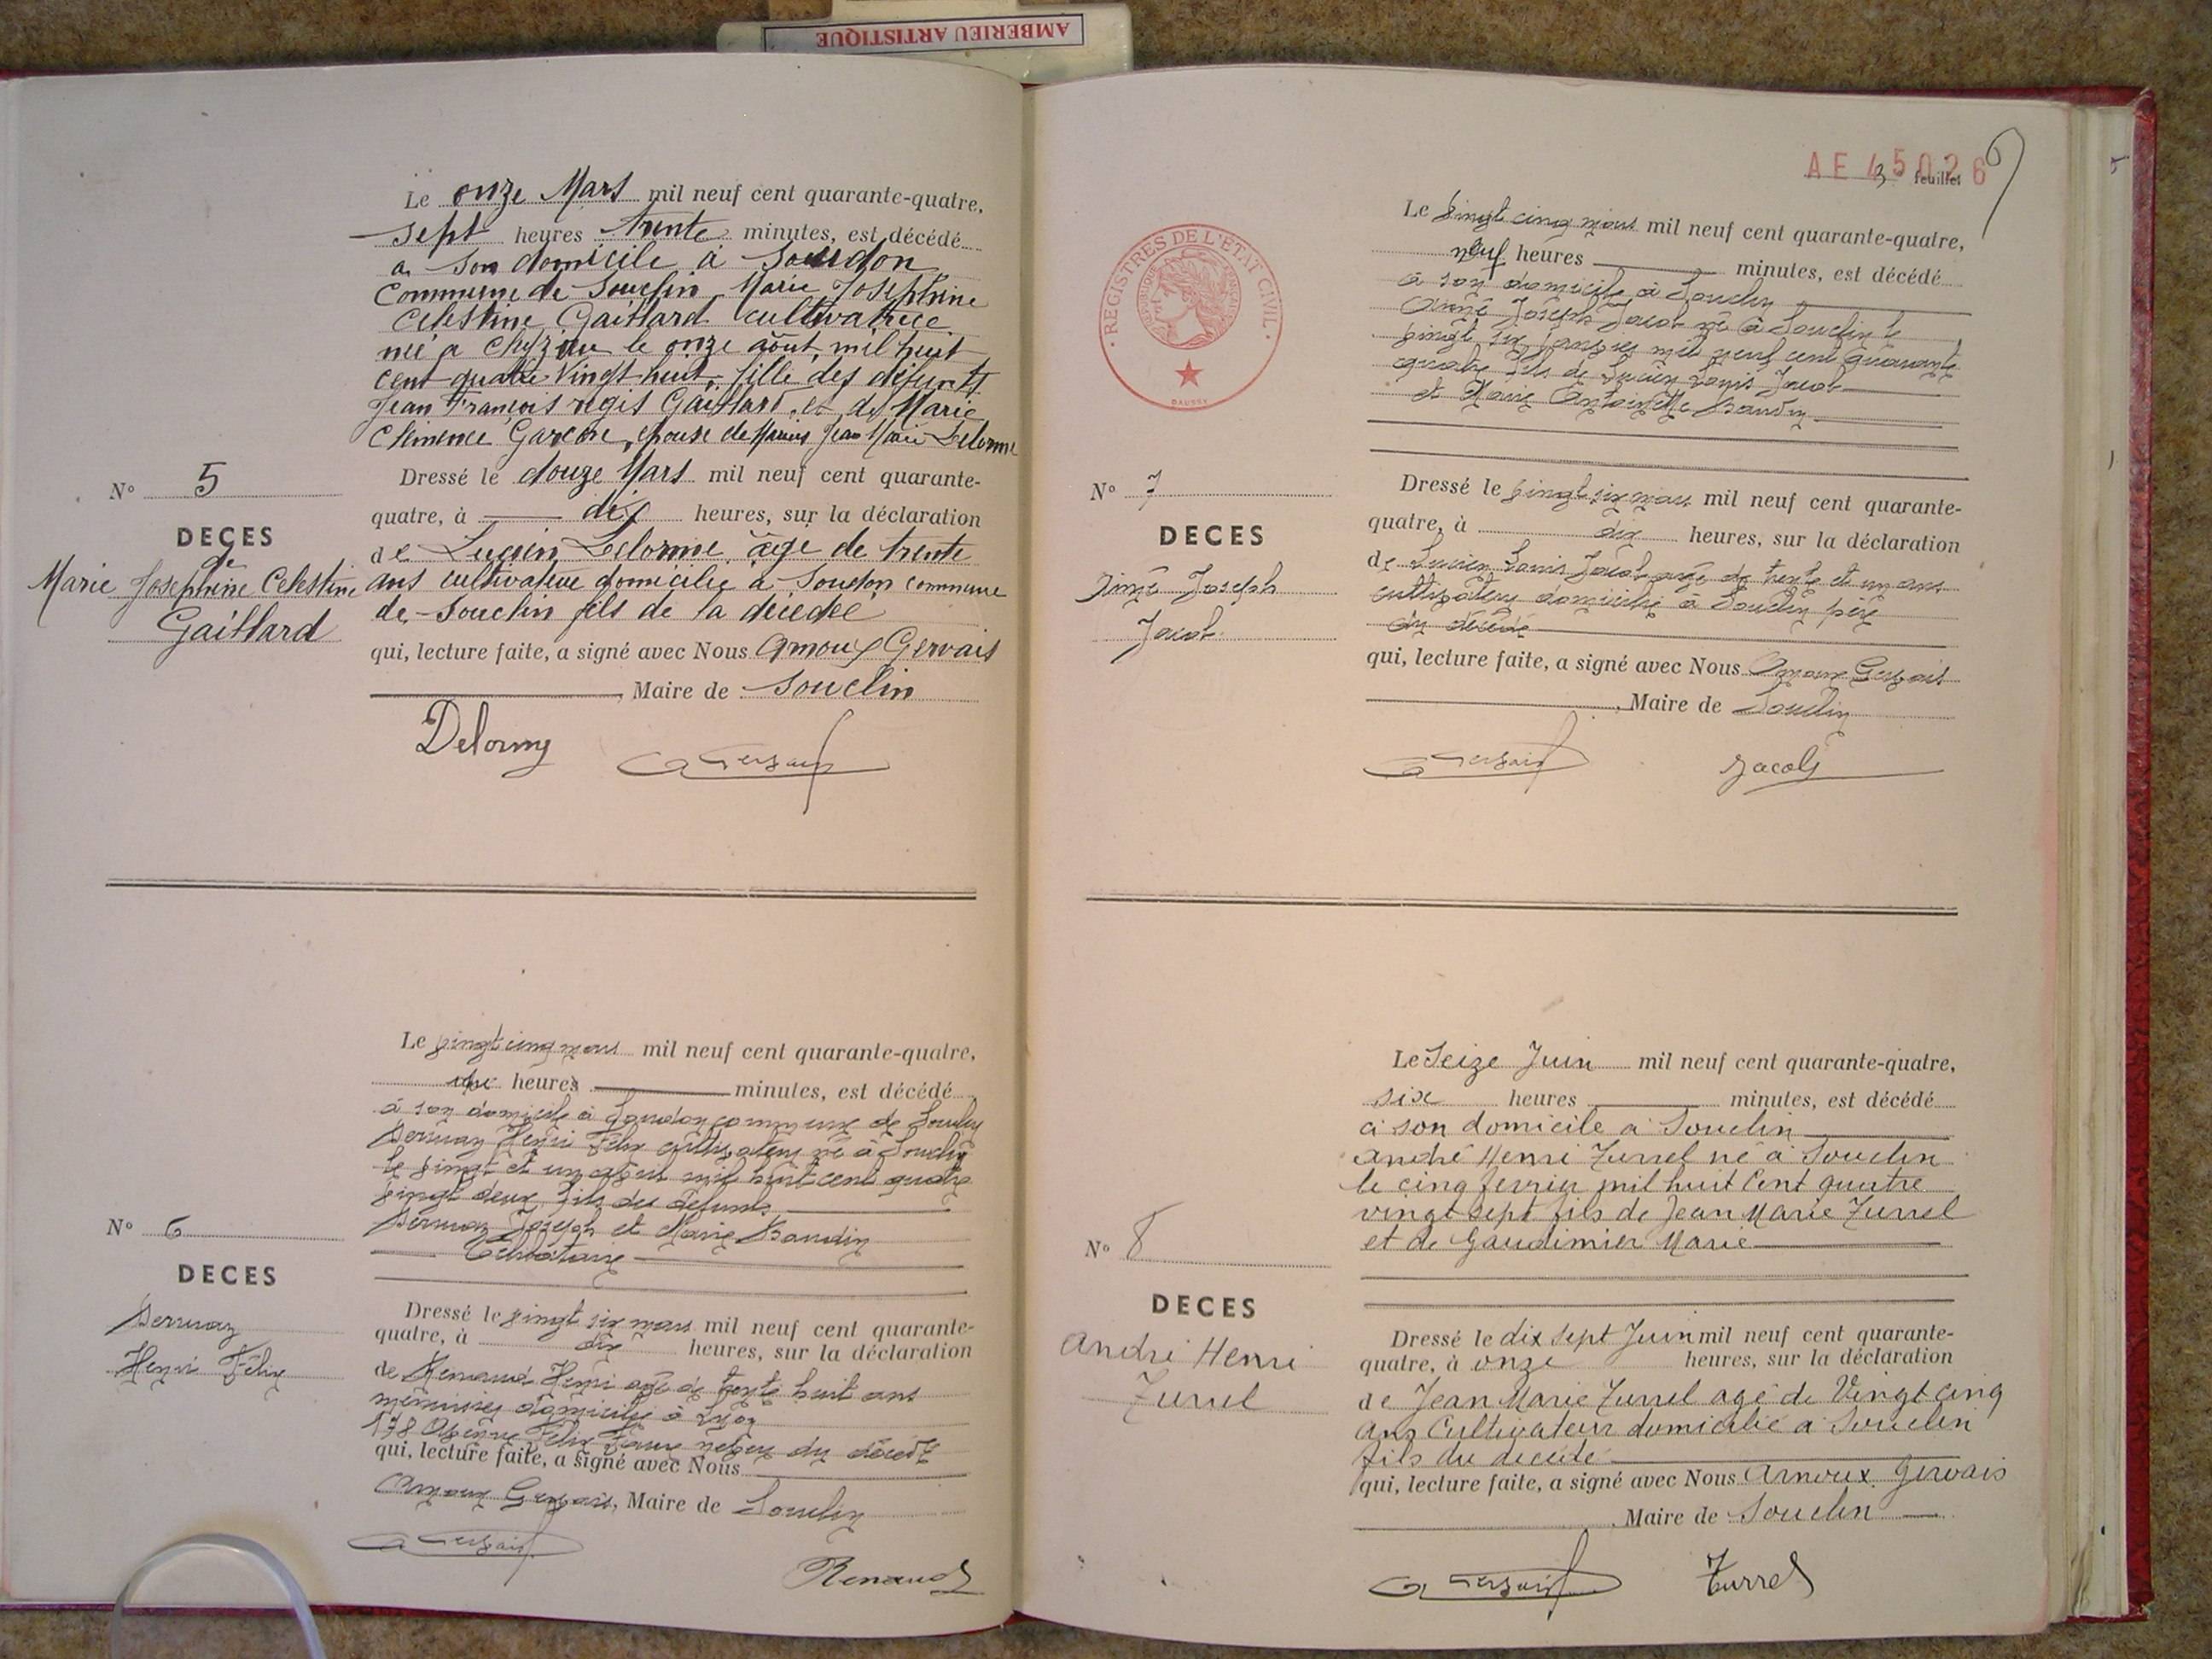 AMBERIEU ARTISTIQUE
Le onze Mars mil neuf cent quarante-quatre,
sept heures trente minutes, est décédé
a son domicile à Soudon
Commune de Souclin Marie Josephine
Celestine Gaillard cultivatrice
née a le onze août mil huit
cent quatre Vingt huit, fille des défunts
Jean François régis Gaillard et de Marie
Clémence épouse de Marius Jean Marie Delorme
N° 5
DECES
de
Marie Josephine Celestine
Gaillard
Dressé le douze Mars mil neuf cent quarante-
quatre, à dix heures, sur la déclaration
de Lucien Delorme âgé de trente
ans cultivateur domicilié à Soudon commune
de Souclin fils de la décédée
qui, lecture faite, a signé avec Nous Arnoux Gervais
Maire de Souclin
Delorme
A Gervais
Le vingt cinq mars mil neuf cent quarante-quatre,
heures minutes, est décédé
à son domicile à Soudon commune de Souclin
Henri Félix cultivateur né à Souclin
le vingt et un avril mil huit cent quatre
vingt deux, fils des défunts
Joseph et Marie Baudin
Célibataire
N° 6
DECES
Henri Félix
Dressé le vingt six mars mil neuf cent quarante-
quatre, à dix heures, sur la déclaration
de Renaud Henri agé de trente huit ans
menuisier domicilié à Lyon
178 Avenue Félix Faure neveu du décédé
qui, lecture faite, a signé avec Nous
Arnoux Gervais, Maire de Souclin
A Gervais
Renaud
AE 45026
3 feuillet
REGISTRES DE L'ETAT CIVIL
REPUBLIQUE FRANÇAISE
DAUSSY
Le vingt cinq mars mil neuf cent quarante-quatre,
neuf heures minutes, est décédé
à son domicile à Souclin
Aimé Joseph Jacob né à Souclin le
vingt six janvier mil neuf cent quarante
quatre fils de Lucien Louis Jacob
et Marie Antoinette Baudin
N° 7
DECES
Aimé Joseph
Jacob
Dressé le vingt six mars mil neuf cent quarante-
quatre, à dix heures, sur la déclaration
de Lucien Louis Jacob agé de trente et un ans
cultivateur domicilié à Souclin père
du décédé
qui, lecture faite, a signé avec Nous Arnoux Gervais
Maire de Souclin
A Gervais
Jacob
Le Seize Juin mil neuf cent quarante-quatre,
six heures minutes, est décédé
à son domicile a Souclin
andré Henri Turrel né à Souclin
le cinq fevrier mil huit Cent quatre
vingt sept fils de Jean Marie Turrel
et de Gaudimier Marie
N° 8
DECES
André Henri
Turrel
Dressé le dix sept Juin mil neuf cent quarante-
quatre, à onze heures, sur la déclaration
de Jean Marie Turrel agé de Vingt cinq
ans Cultivateur domicilié a Souclin
fils du décédé
qui, lecture faite, a signé avec Nous Arnoux Gervais
Maire de Souclin
A Gervais
Turrel